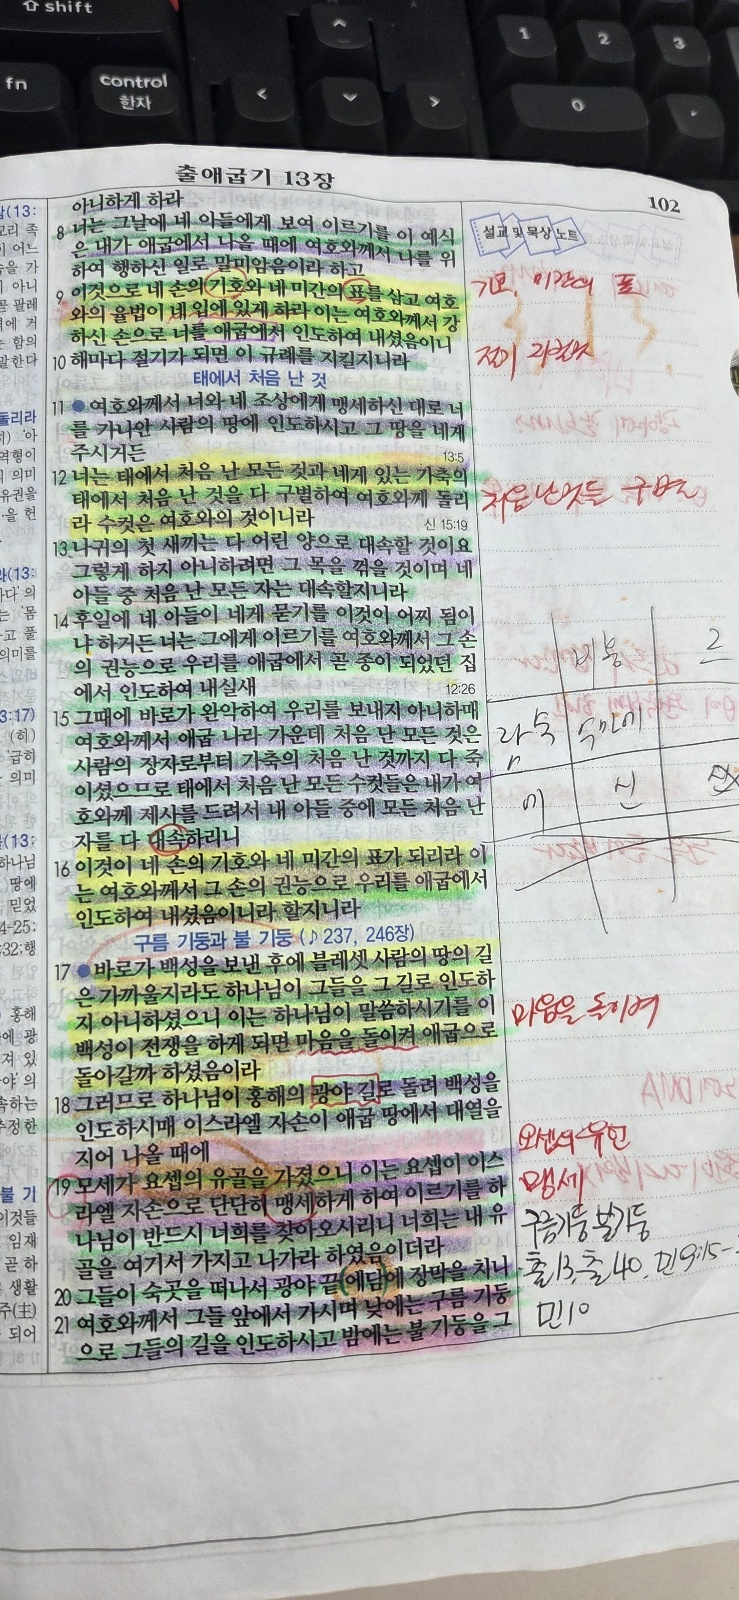 shift
fn
control
한자
1
2
3
0
출애굽기 13장
102
아니하게 하라
8 너는 그날에 네 아들에게 보여 이르기를 이 예식
은 내가 애굽에서 나올 때에 여호와께서 나를 위
하여 행하신 일로 말미암음이라 하고
9 이것으로 네 손의 기호와 네 미간의 표를 삼고 여호
와의 율법이 네 입에 있게 하라 이는 여호와께서 강
하신 손으로 너를 애굽에서 인도하여 내셨음이니
10 해마다 절기가 되면 이 규례를 지킬지니라
태에서 처음 난 것
11 ● 여호와께서 너와 네 조상에게 맹세하신 대로 너
를 가나안 사람의 땅에 인도하시고 그 땅을 네게
주시거든 13:5
12 너는 태에서 처음 난 모든 것과 네게 있는 가축의
태에서 처음 난 것을 다 구별하여 여호와께 돌리
라 수컷은 여호와의 것이니라 신 15:19
13 나귀의 첫 새끼는 다 어린 양으로 대속할 것이요
그렇게 하지 아니하려면 그 목을 꺾을 것이며 네
아들 중 처음 난 모든 자는 대속할지니라
14 후일에 네 아들이 네게 묻기를 이것이 어찌 됨이
냐 하거든 너는 그에게 이르기를 여호와께서 그 손
의 권능으로 우리를 애굽에서 곧 종이 되었던 집
에서 인도하여 내실새 12:26
15 그때에 바로가 완악하여 우리를 보내지 아니하매
여호와께서 애굽 나라 가운데 처음 난 모든 것은
사람의 장자로부터 가축의 처음 난 것까지 다 죽
이셨으므로 태에서 처음 난 모든 수컷들은 내가 여
호와께 제사를 드려서 내 아들 중에 모든 처음 난
자를 다 대속하리니
16 이것이 네 손의 기호와 네 미간의 표가 되리라 이
는 여호와께서 그 손의 권능으로 우리를 애굽에서
인도하여 내셨음이니라 할지니라
구름 기둥과 불 기둥 (♪ 237, 246장)
17 ● 바로가 백성을 보낸 후에 블레셋 사람의 땅의 길
은 가까울지라도 하나님이 그들을 그 길로 인도하
지 아니하셨으니 이는 하나님이 말씀하시기를 이
백성이 전쟁을 하게 되면 마음을 돌이켜 애굽으로
돌아갈까 하셨음이라
18 그러므로 하나님이 홍해의 광야 길로 돌려 백성을
인도하시매 이스라엘 자손이 애굽 땅에서 대열을
지어 나올 때에
19 모세가 요셉의 유골을 가졌으니 이는 요셉이 이스
라엘 자손으로 단단히 맹세하게 하여 이르기를 하
나님이 반드시 너희를 찾아오시리니 너희는 내 유
골을 여기서 가지고 나가라 하였음이더라
20 그들이 숙곳을 떠나서 광야 끝 에담에 장막을 치니
21 여호와께서 그들 앞에서 가시며 낮에는 구름 기둥
으로 그들의 길을 인도하시고 밤에는 불 기둥을 그
설교 및 묵상 노트
기호, 미간의 표
처음난것들 구별
마음을 돌이켜
요셉의 유언
맹세
구름기둥 불기둥
출13, 출40, 민9:15-
민10